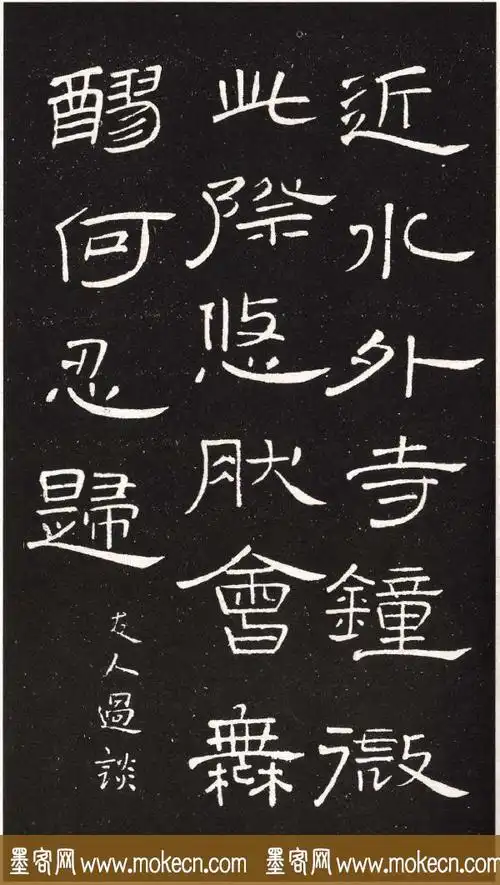 近水外寺鐘微
此際悠肰會橆
醪何忍歸
友人過談
墨客网 www.mokecn.com 墨客网 www.mokecn.com